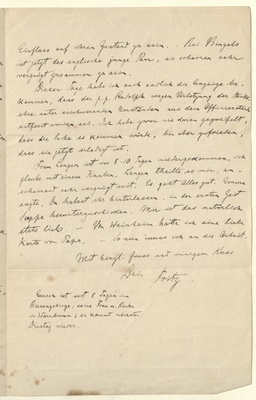 Einfluss auf ihren Zustand zu sein. — Bei Bingels
ist jetzt das englische junge Paar, sie scheinen sehr
vergnügt zusammen zu sein.
Dieser Tage habe ich auch endlich die Anzeige be-
kommen, dass der p.p. Rudolph wegen Verletzung der Standes
ehre unter erschwerenden Umständen aus dem Offiziersstand
entfernt worden sei. Ich habe zwar nie daran gezweifelt,
dass die Sache so kommen würde, bin aber zufrieden,
dass sie jetzt erledigt ist.
Frau Langen ist vor 8-10 Tagen niedergekommen, ich
glaube mit einem Knaben. Langen theilte es mir, an-
scheinend sehr vergnügt mit. Es geht alles gut. Emma
sagte, Du habest ihr hinterlassen, in der ersten Zeit
Suppe herunterzuschicken. Mir ist das natürlich
sehr lieb. — Von Weinheim hatte ich eine liebe
Karte von Papa. — So nun muss ich an die Arbeit.
Mit herzl. Gruss und innigem Kuss
Dein Fritz
ist seit 8 Tagen im
Riesengebirge, seine Frau u. Kinder
in ; er kommt nächsten
Dienstag wieder.